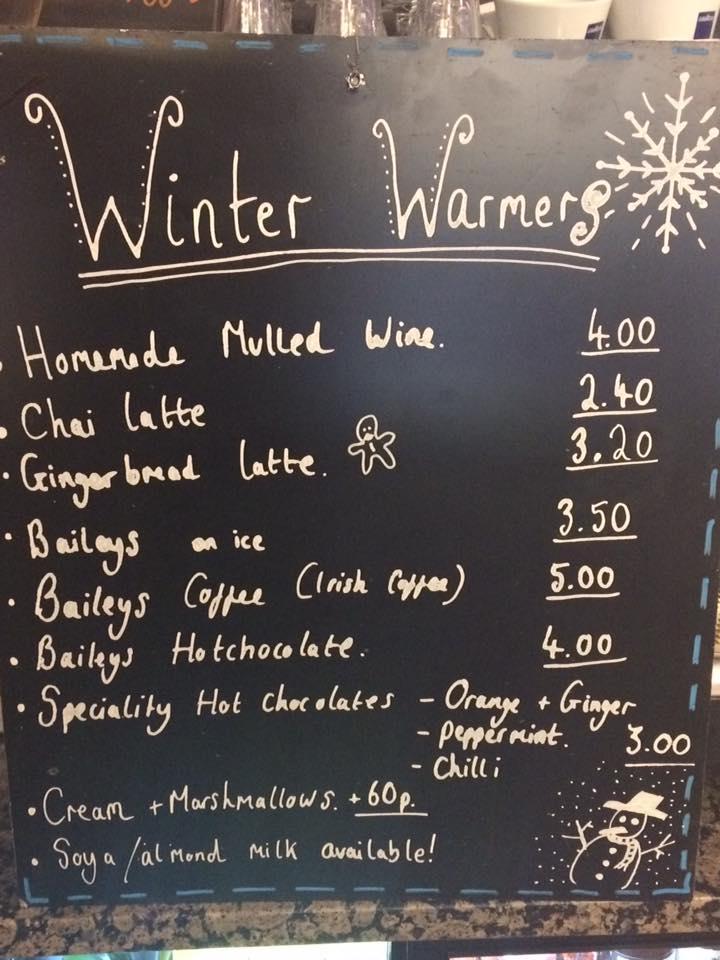 Winter Warmers
• Homemade Mulled Wine. 4.00
• Chai latte 2.40
• Gingerbread latte. 3.20
• Baileys on ice 3.50
• Baileys Coffee (Irish Coffee) 5.00
• Baileys Hotchocolate. 4.00
• Speciality Hot Chocolates - Orange + Ginger
- Peppermint. 3.00
- Chilli
• Cream + Marshmallows. + 60p.
• Soya/almond milk available!